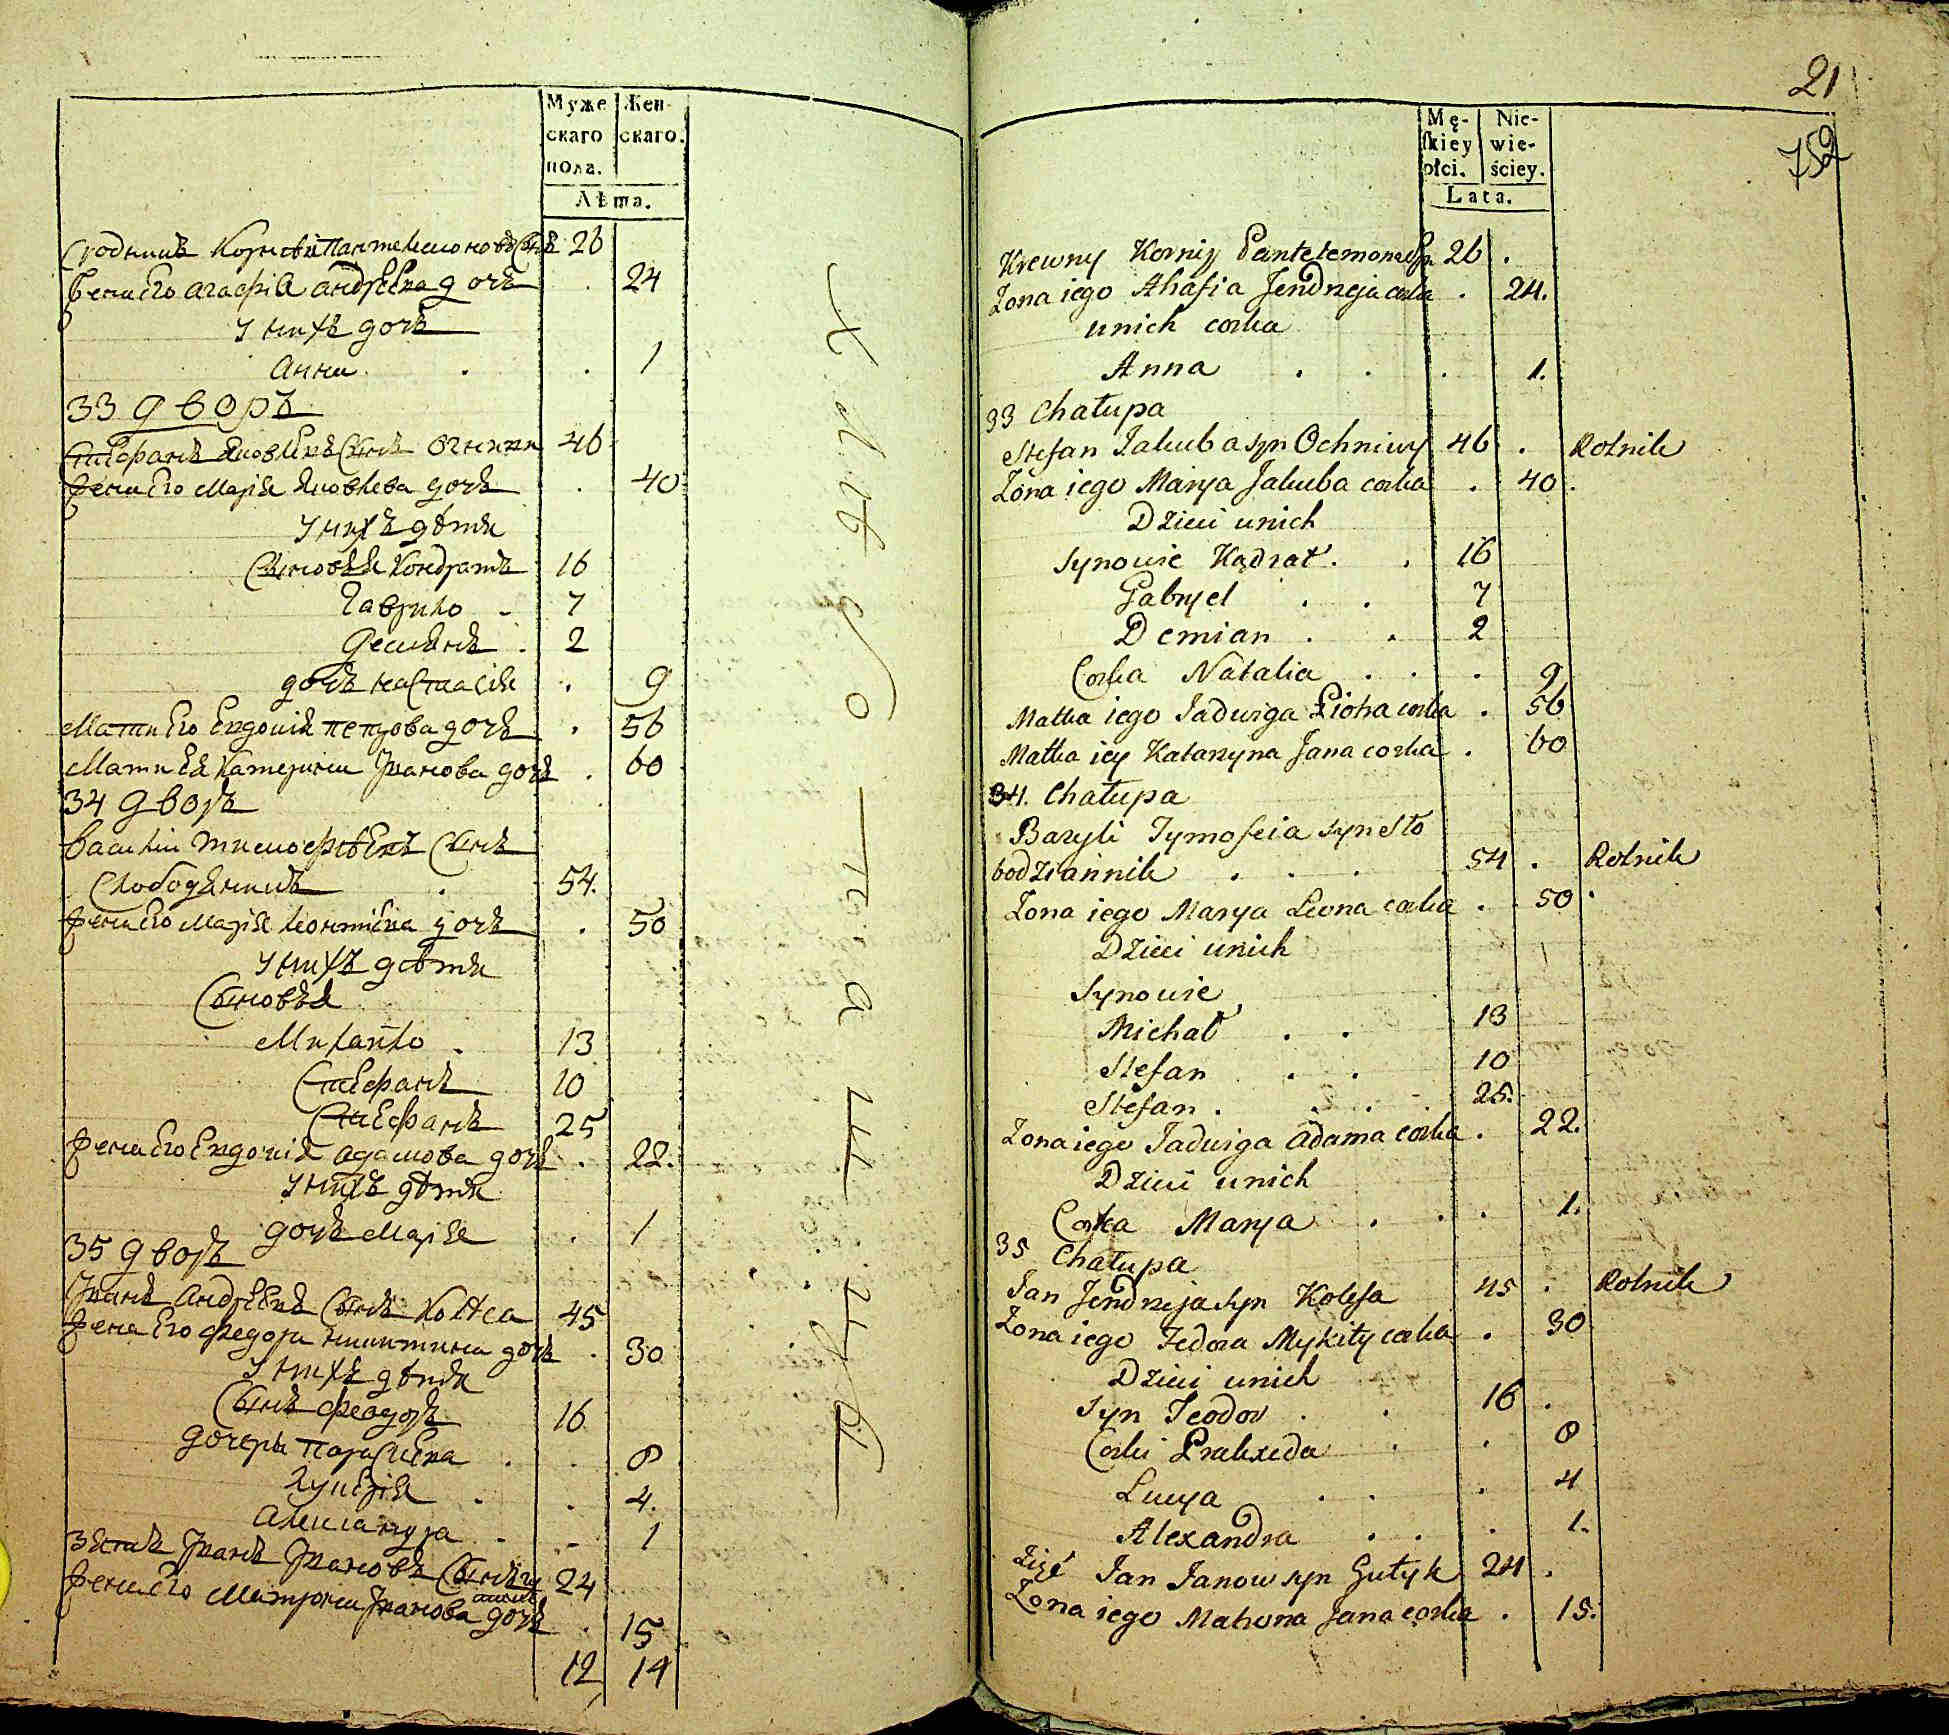 Муже
скаго
пола.
Жен-
скаго.
Лѣта.
Сродникъ Корнѣй Пантелимоновъ Сынъ 26
жена Его Агафия Андреева дочь 24
у нихъ дочь
Анна 1
33 дворъ
Стефанъ Яковлевъ Сынъ 46
жена Его Мария Яковлева дочь 40
у нихъ дѣти
Сыновья Кондратъ 16
Гаврило 7
Демянъ 2
дочь Настасия 9
Мати Его Евдокия Петрова дочь 56
Мати Ея Катерина Иванова дочь 60
34 дворъ
Василий Тимофѣевъ Сынъ
Слободяникъ 54.
жена Его Мария Леонтиева дочь 50
у нихъ дѣти
Сыновья
Михайло 13
Стефанъ 10
Стефанъ 25
жена Его Евдокия Адамова дочь 22.
у нихъ дѣти
дочь Мария 1
35 дворъ
Иванъ Андреевъ Сынъ Колѣса 45
жена Его Федора Никитина дочь 30
у нихъ дѣти
Сынъ Феодоръ 16
дочери Параскева 8
Лукерия 4.
Александра 1
Зять Иванъ Ивановъ Сынъ 24
жена Его Матрона Иванова дочь 15
12 14
21
752
Mę-
ſkiey
płci.
Nie-
wie-
ściey.
Lata.
Krewny Korniy Pantelemona Syn 26 .
Zona iego Ahafia Jendrzeja corka . 24.
unich corka
Anna . . . 1.
33 Chałupa
Stefan Jakuba syn Ochniwy 46 . Rolnik
Zona iego Marya Jakuba corka . 40.
Dzieci unich
Synowie Kądrat . . 16
Gabryel . . 7
Demian . . 2
Corka Natalia . . . 9
Matka iego Jadwiga Piotra corka . 56
Matka iey Katarzyna Jana corka . 60
34. Chałupa
Bazyli Tymofeia syn Sło
bodziannik . . . 54 . Rolnik
Zona iego Marya Leona corka . 50.
Dzieci unich
Synowie
Michał . . 13
Stefan . . 10
Stefan . . . 25.
Zona iego Jadwiga Adama corka . 22.
Dzieci unich
Corka Marya . . . 1.
35 Chałupa
Jan Jendrzeja syn Kolesa 45 . Rolnik
Zona iego Fedora Mykity corka . 30
Dzieci unich
Syn Teodor . . 16 .
Corki Praxeda . . 8
Lucya . . . 4
Alexandra . . . 1.
Zięć Jan Janow syn Gutyk 24 .
Zona iego Matrona Jana corka . 15.